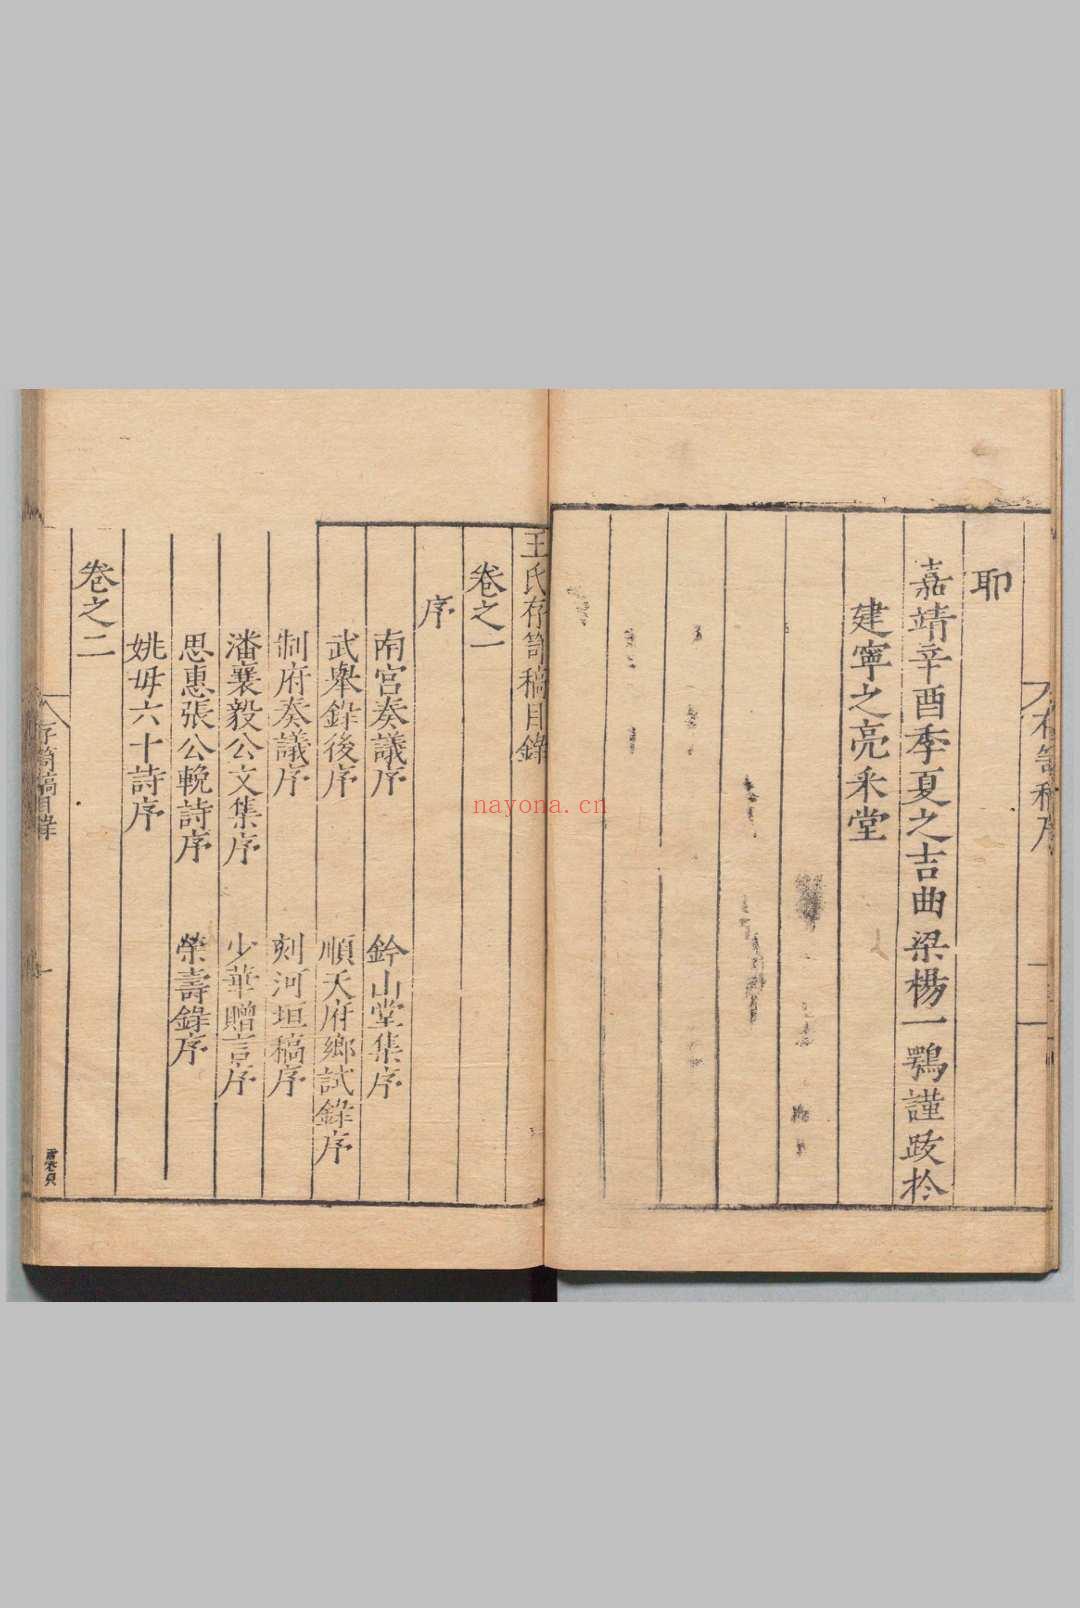 耶
嘉靖辛酉季夏之吉曲梁楊一鶚謹跋於
建寧之亮采堂
王氏存笥稿目錄
卷之一
序
南宮奏議序
鈐山堂集序
武舉錄後序
順天府鄉試錄序
制府奏議序
刻河垣稿序
潘襄毅公文集序
少華贈言序
思惠張公輓詩序
榮壽錄序
姚母六十詩序
卷之二
存笥稿目錄
一
nayona.cn